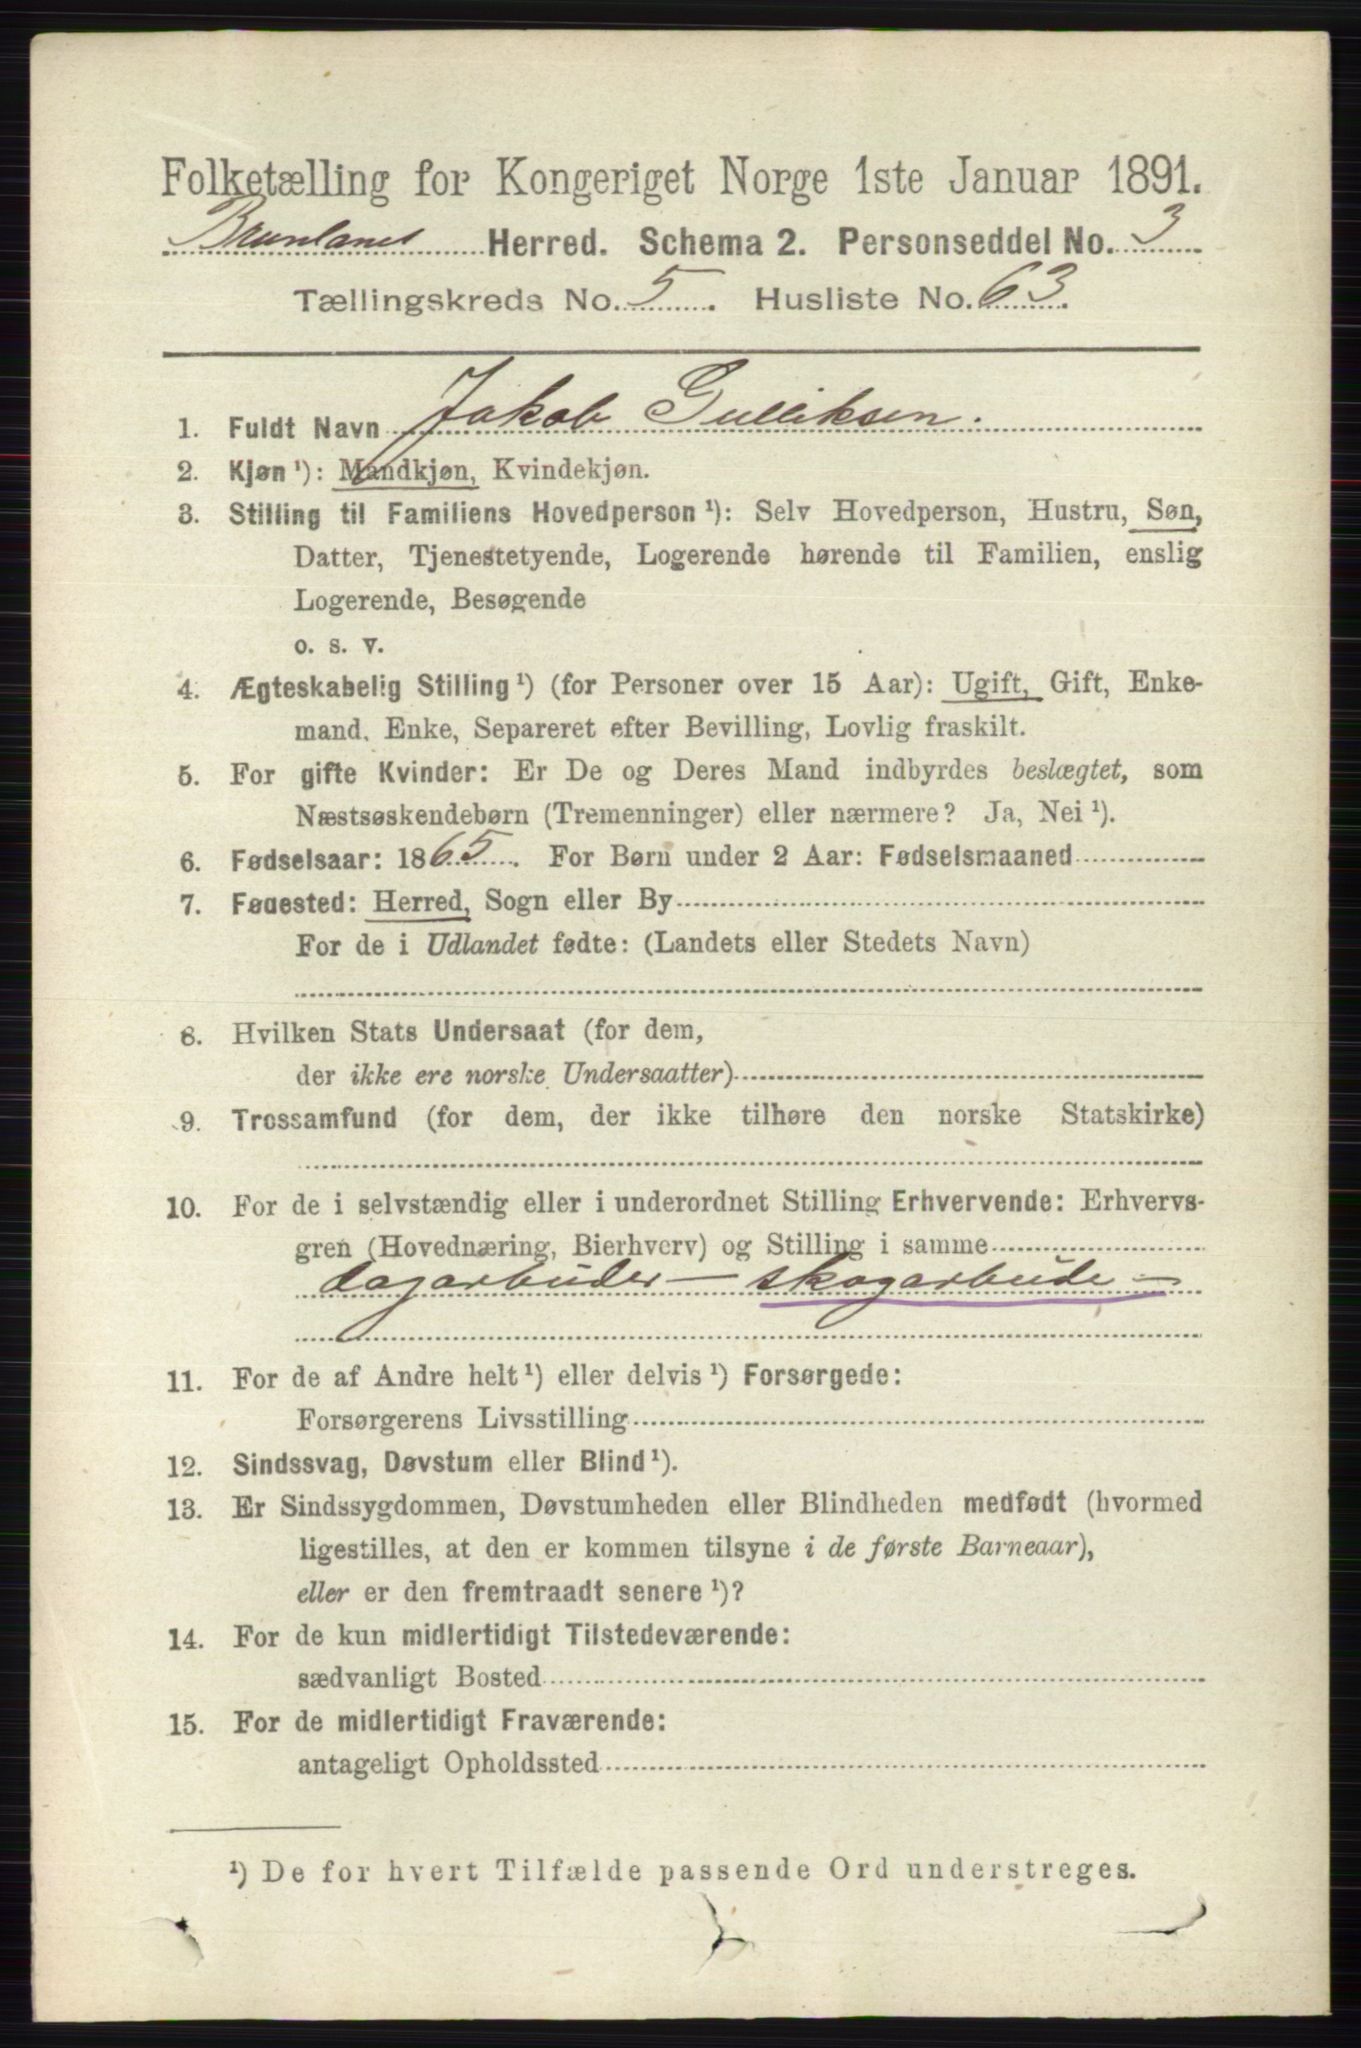 Folketælling for Kongeriget Norge 1ste Januar 1891.
Brunlanes Herred. Schema 2. Personseddel No. 3
Tællingskreds No. 5. Husliste No. 63.
1. Fuldt Navn Jakob Gulliksen.
2. Kjøn¹): Mandkjøn, Kvindekjøn.
3. Stilling til Familiens Hovedperson¹): Selv Hovedperson, Hustru, Søn,
Datter, Tjenestetyende, Logerende hørende til Familien, enslig
Logerende, Besøgende
o. s. v.
4. Ægteskabelig Stilling¹) (for Personer over 15 Aar): Ugift, Gift, Enke-
mand, Enke, Separeret efter Bevilling, Lovlig fraskilt.
5. For gifte Kvinder: Er De og Deres Mand indbyrdes beslægtet, som
Næstsøskendebørn (Tremenninger) eller nærmere? Ja, Nei¹).
6. Fødselsaar: 1865. For Børn under 2 Aar: Fødselsmaaned
7. Fødested: Herred, Sogn eller By
For de i Udlandet fødte: (Landets eller Stedets Navn)
8. Hvilken Stats Undersaat (for dem,
der ikke ere norske Undersaatter)
9. Trossamfund (for dem, der ikke tilhøre den norske Statskirke)
10. For de i selvstændig eller i underordnet Stilling Erhvervende: Erhvervs-
gren (Hovednæring, Bierhverv) og Stilling i samme
dagarbuder - skogarbude -
11. For de af Andre helt¹) eller delvis¹) Forsørgede:
Forsørgerens Livsstilling
12. Sindssvag, Døvstum eller Blind¹).
13. Er Sindssygdommen, Døvstumheden eller Blindheden medfødt (hvormed
ligestilles, at den er kommen tilsyne i de første Barneaar),
eller er den fremtraadt senere¹)?
14. For de kun midlertidigt Tilstedeværende:
sædvanligt Bosted
15. For de midlertidigt Fraværende:
antageligt Opholdssted
¹) De for hvert Tilfælde passende Ord understreges.